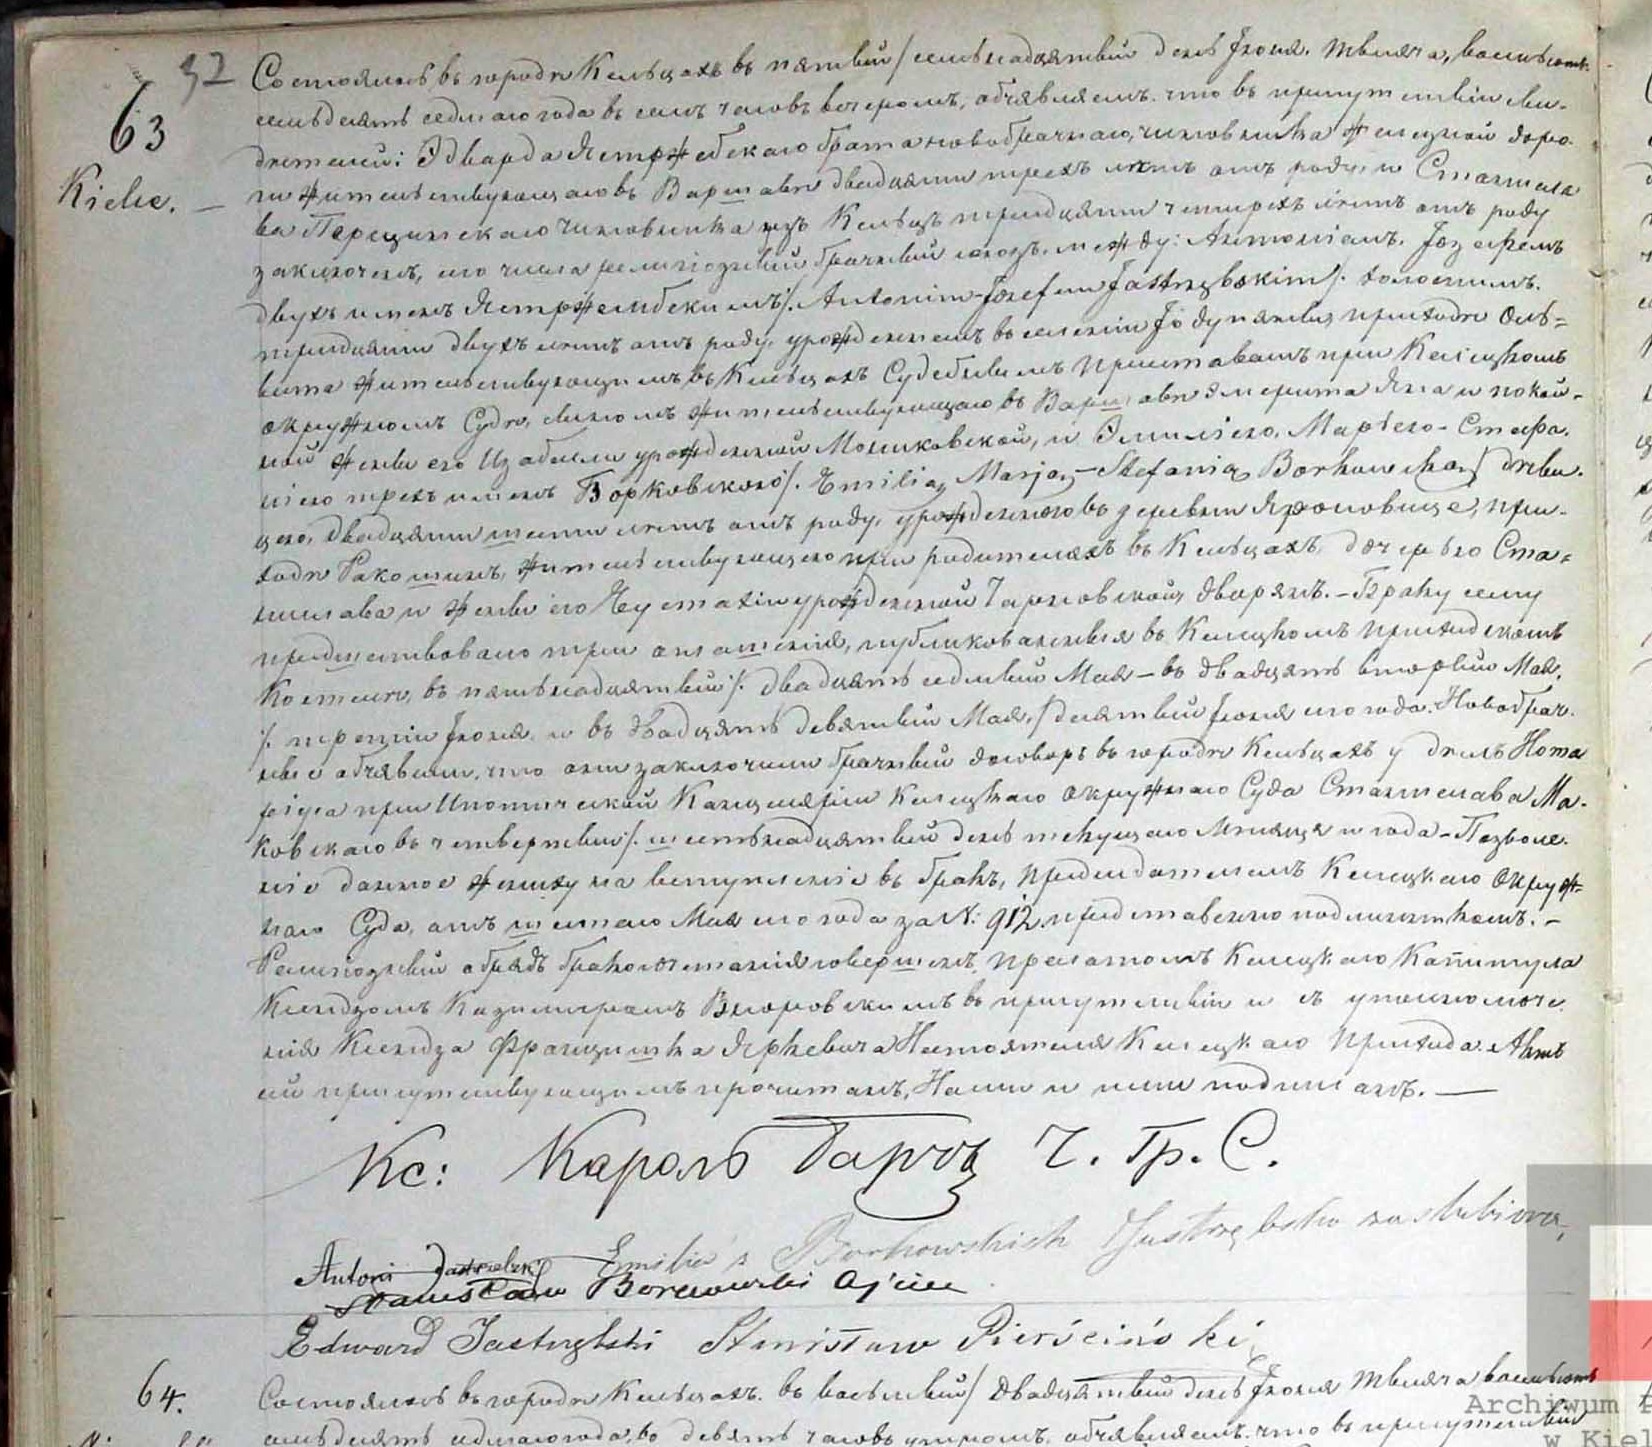 32
63
Kielce. —
Состоялось въ городѣ Кельцахъ въ пятый / семьнадцатый день Іюня, тысяча, восемьсотъ
семьдесятъ седьмаго года въ семь часовъ вечеромъ, объявляемъ что въ присутствіи сви-
дѣтелей: Эдварда Ястржебскаго брата новобрачнаго, чиновника желѣзной доро-
ги жительствующаго въ Варшавѣ двадцати трехъ лѣтъ отъ роду, и Станисла-
ва чиновника изъ Кельцъ тридцати четырехъ лѣтъ отъ роду
заключенъ, сего числа религіозный брачный союзъ, между: Антоніемъ, Іозефомъ
двухъ именъ Ястржембскимъ /. Antonim-Józefem Jastrzębskim /. холостымъ.
тридцати двухъ лѣтъ отъ роду, урожденнымъ въ селеніи приходѣ Оль-
жительствующимъ въ Кельцахъ Судебнымъ Приставомъ при Келецкомъ
Окружномъ Судѣ, сыномъ жительствующаго въ Варшавѣ Эмерита Яна и покой-
ной жены его Изабелли урожденной и Эмиліею, Марьею - Стефа-
ніею трехъ именъ Борковскою /. Emilią, Marją - Stefanią Borkowską / дѣви-
цею, двадцати шести лѣтъ отъ роду, урожденною въ деревни при-
ходѣ Ракошинъ, жительствующею при родителяхъ въ Кельцахъ, дочерью Ста-
нислава и жены его урожденной Чарновской, дворянъ. - Браку сему
предшествовало три оглашенія, публикованныя въ Келецкомъ Приходскомъ
Костелѣ, въ пятьнадцатый /. двадцать седьмый Мая - въ двадцать вторый Мая,
/. третій Іюня, и въ двадцать девятый Мая, / десятый Іюня сего года. Новобрач-
ные объявили, что они заключили брачный договоръ въ городѣ Кельцахъ у дѣлъ Нота
ріуса при Ипотичеській Канцеляріи Келецкаго Окружнаго Суда Станислава Ма-
ковскаго въ четвертый /. шестьнадцатый день текущаго Мѣсяца и года - Позволе-
ніе данное жениху на вступленіе въ бракъ, Предсѣдателемъ Келецкаго Окруж-
наго Суда, отъ шестаго Мая сего года за №: 912. представлено подлинникомъ. -
Религіозный обрядъ бракосочетанія совершенъ, Прелатомъ Келецкаго Капитула
Ксендзомъ Казимиромъ въ присутствіи и съ уполномоче-
нія Ксендза Францишка Яркевича Настоятеля Келецкаго Прихода. Актъ
сей присутствующимъ прочитанъ, Нами и ими подписанъ. —
Кс: Кароль Ч. Гр. С.
Emilia z Borkowskich Jastrzębska zaslubiona,
Antoni Jastrzębski
Stanisław Borkowski Ojciec
Edward Jastrzębski Stanisław Pierściński
64.
Состоялось въ городѣ Кельцахъ, въ восьмый / двадцатый день Іюня тысяча восемьсотъ
семьдесятъ седьмаго года, въ девять часовъ утромъ, объявляемъ, что въ присутствіи
Archiwum P
w Kiel